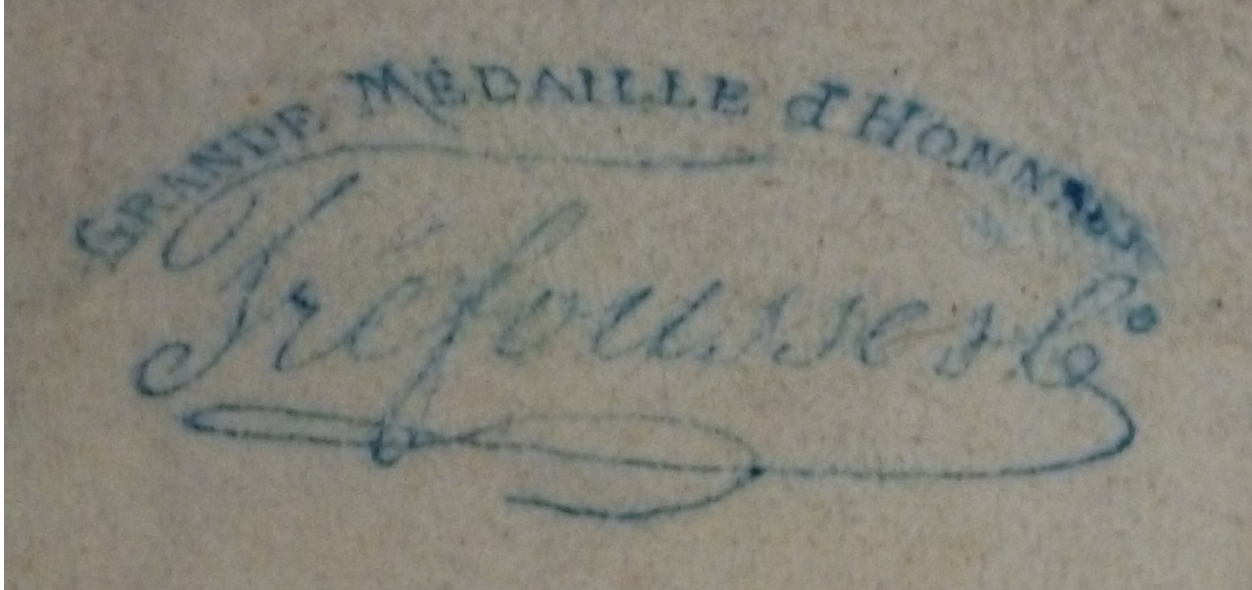 GRANDE MÉDAILLE d'HONNEUR
Tréfousse & Co